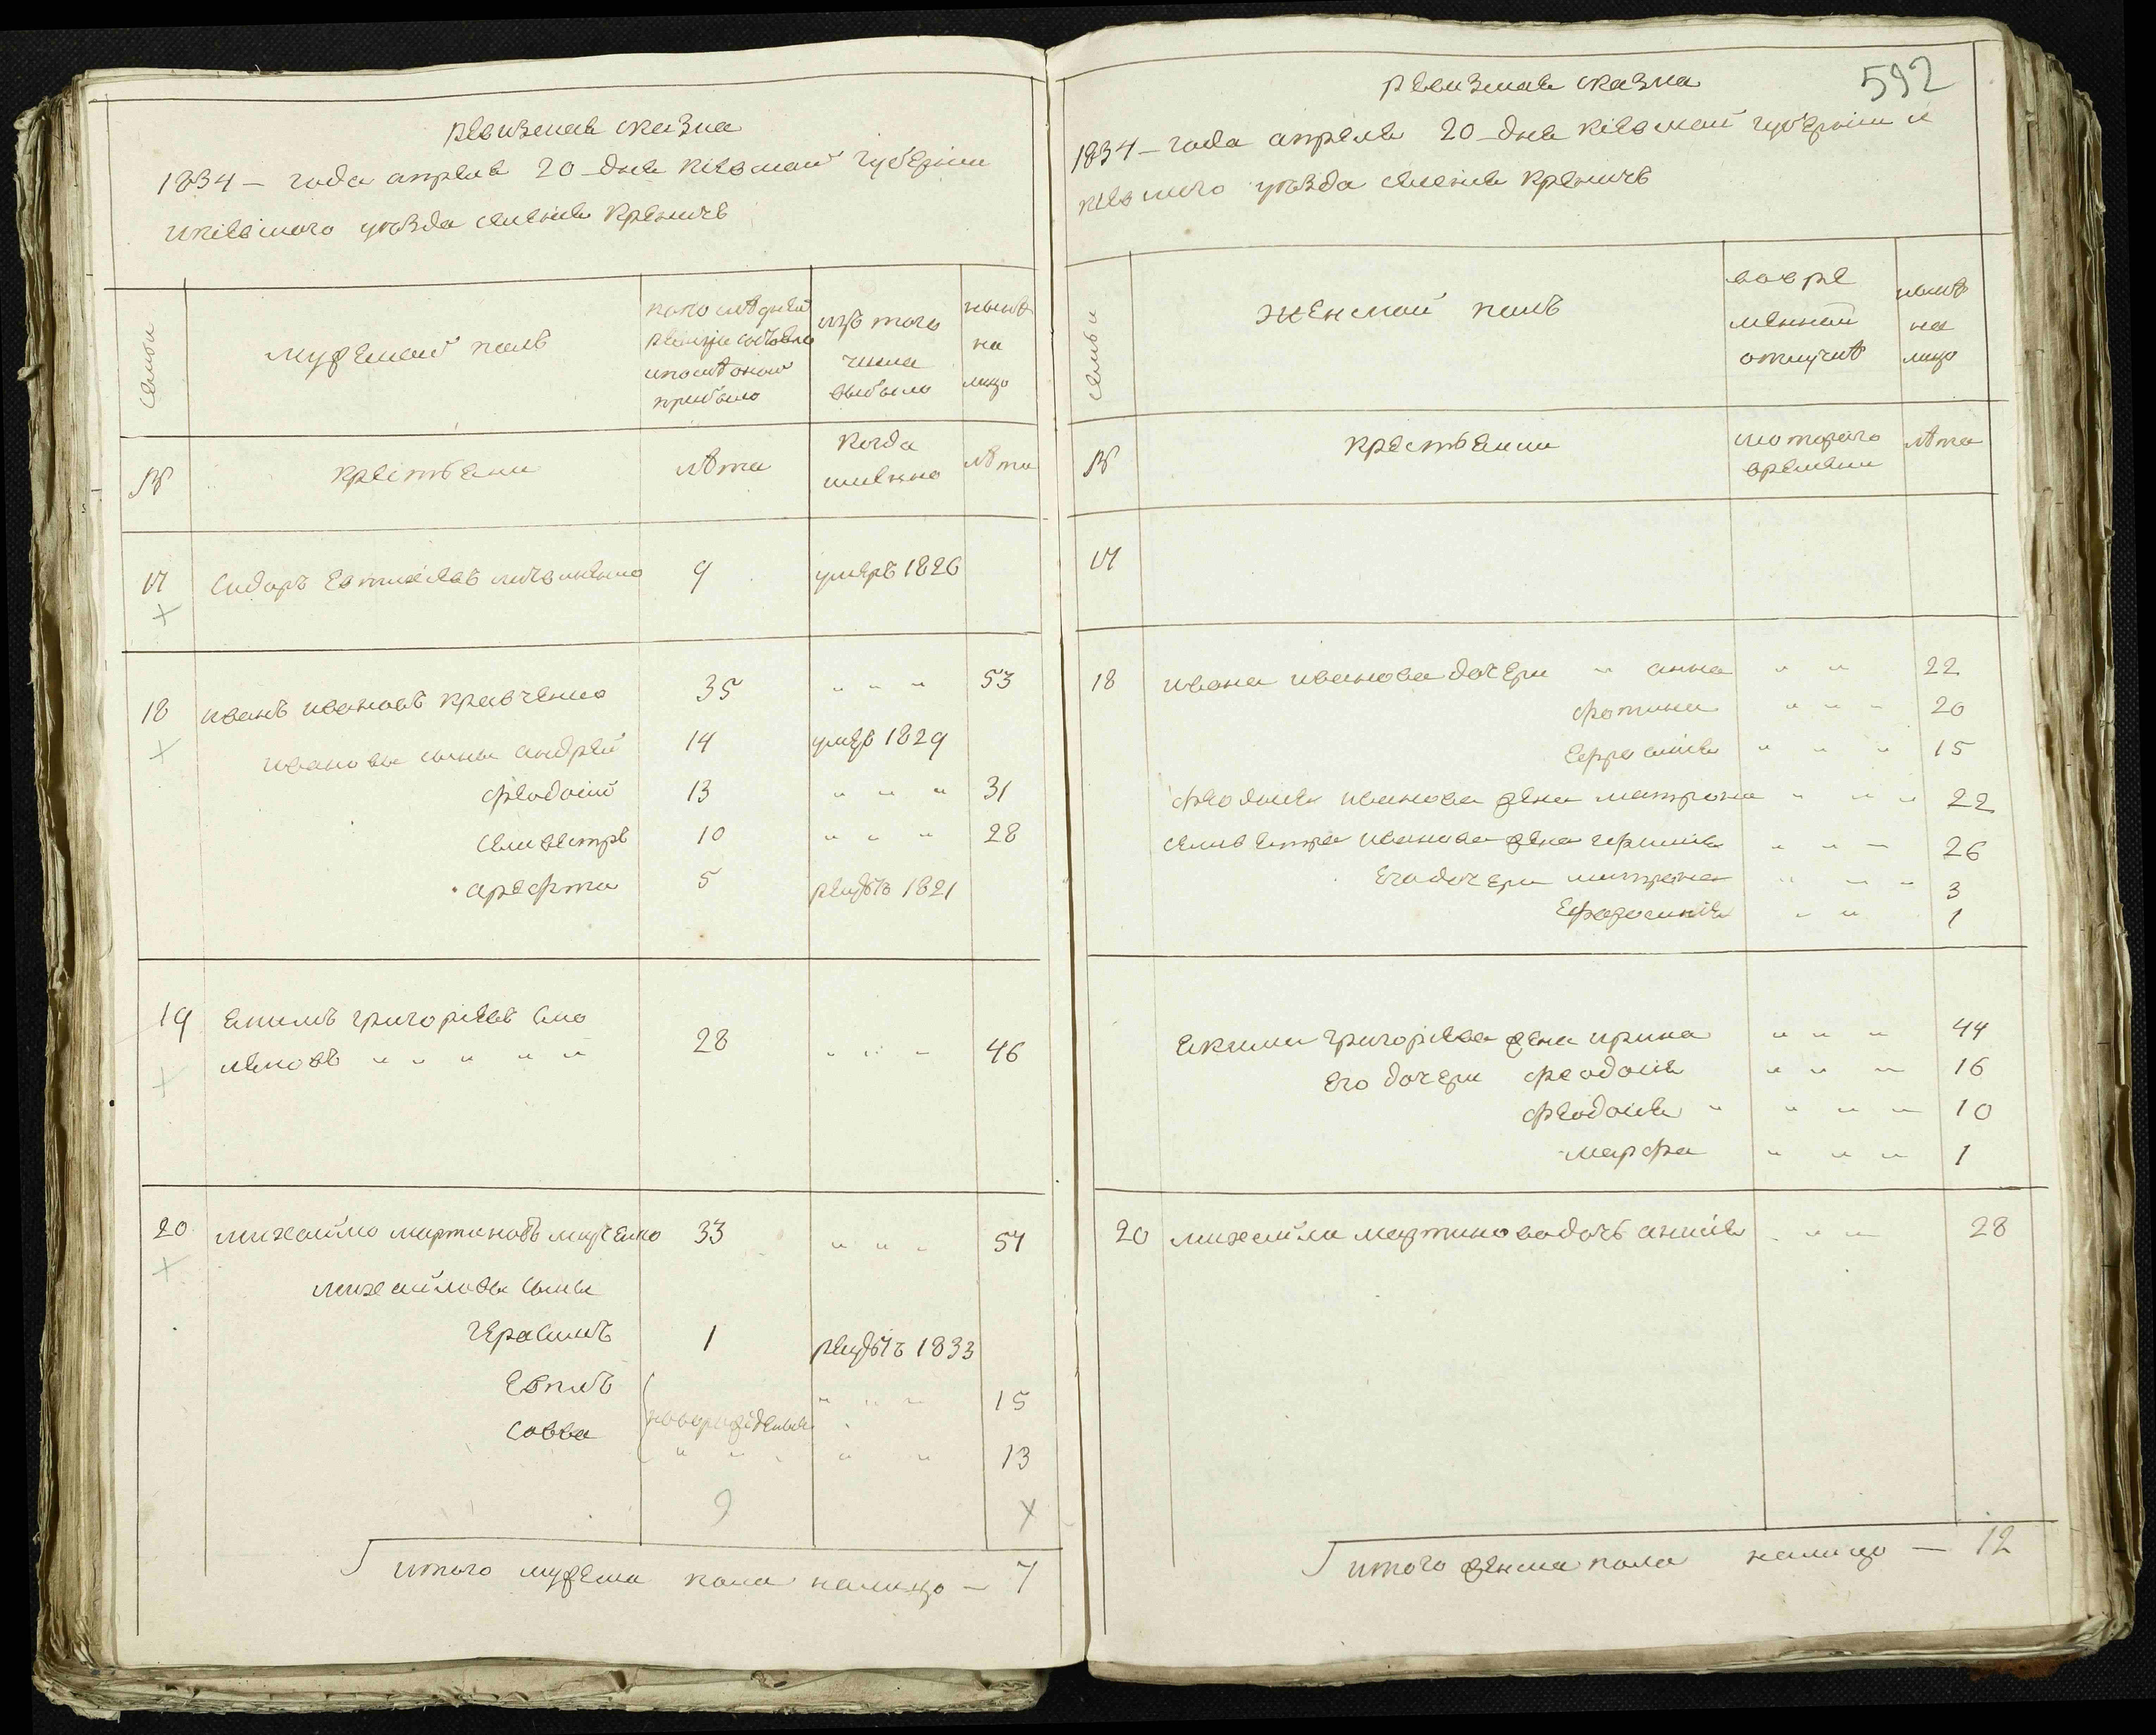 ревизская сказка
1834 — года апреля 20 дня киевской губернии
и киевского уѣзда селения Креничъ
семьи
мужеской полъ
по последней ревизіи состояло и после оной прибыло
изъ того числа выбыло
нынѣ на лицо
№
крестьяни
лѣта
когда именно
лѣта
17 Сидоръ Евтихіевъ 9 умеръ 1826
18 иванъ ивановъ кравченко 35 " " " 53
ивановы сыны андрей 14 умеръ 1829
феодосий 13 " " " 31
Селивестръ 10 " " " 28
арефта 5 рекрутъ 1821
19 Екимъ григоріевъ Смо
ляковъ " " " " " 28 " " " 46
20 михайло мартиновъ 33 " " " 51
михайловы сыны
герасимъ 1 рекрутъ 1833
Евпмъ " " " 15
Савва новорожденные
" " " " " 13
9
итого мужеска пола налицо — 7
592
ревизская сказка
1834 — года апреля 20 дня киевской губернии и
киевского уѣзда селения Креничъ
семьи
женской полъ
во временной отлучкѣ
нынѣ на лицо
№
крестьянки
с которого времени
лѣта
17
18 ивана иванова дочери " анна " " 22
фотина " " " 20
Ефросинія " " " 15
феодосия иванова жена матрона " " " 22
Селивестра иванова жена " " " 26
Его дочери матрона " " " 3
" " 1
Екима григоріева жена ирина " " " 44
Его дочери феодосія " " " 16
феодосія " " " " 10
марфа " " " 1
20 михайла мартинова дочь " " " 28
итого женска пола налицо — 12